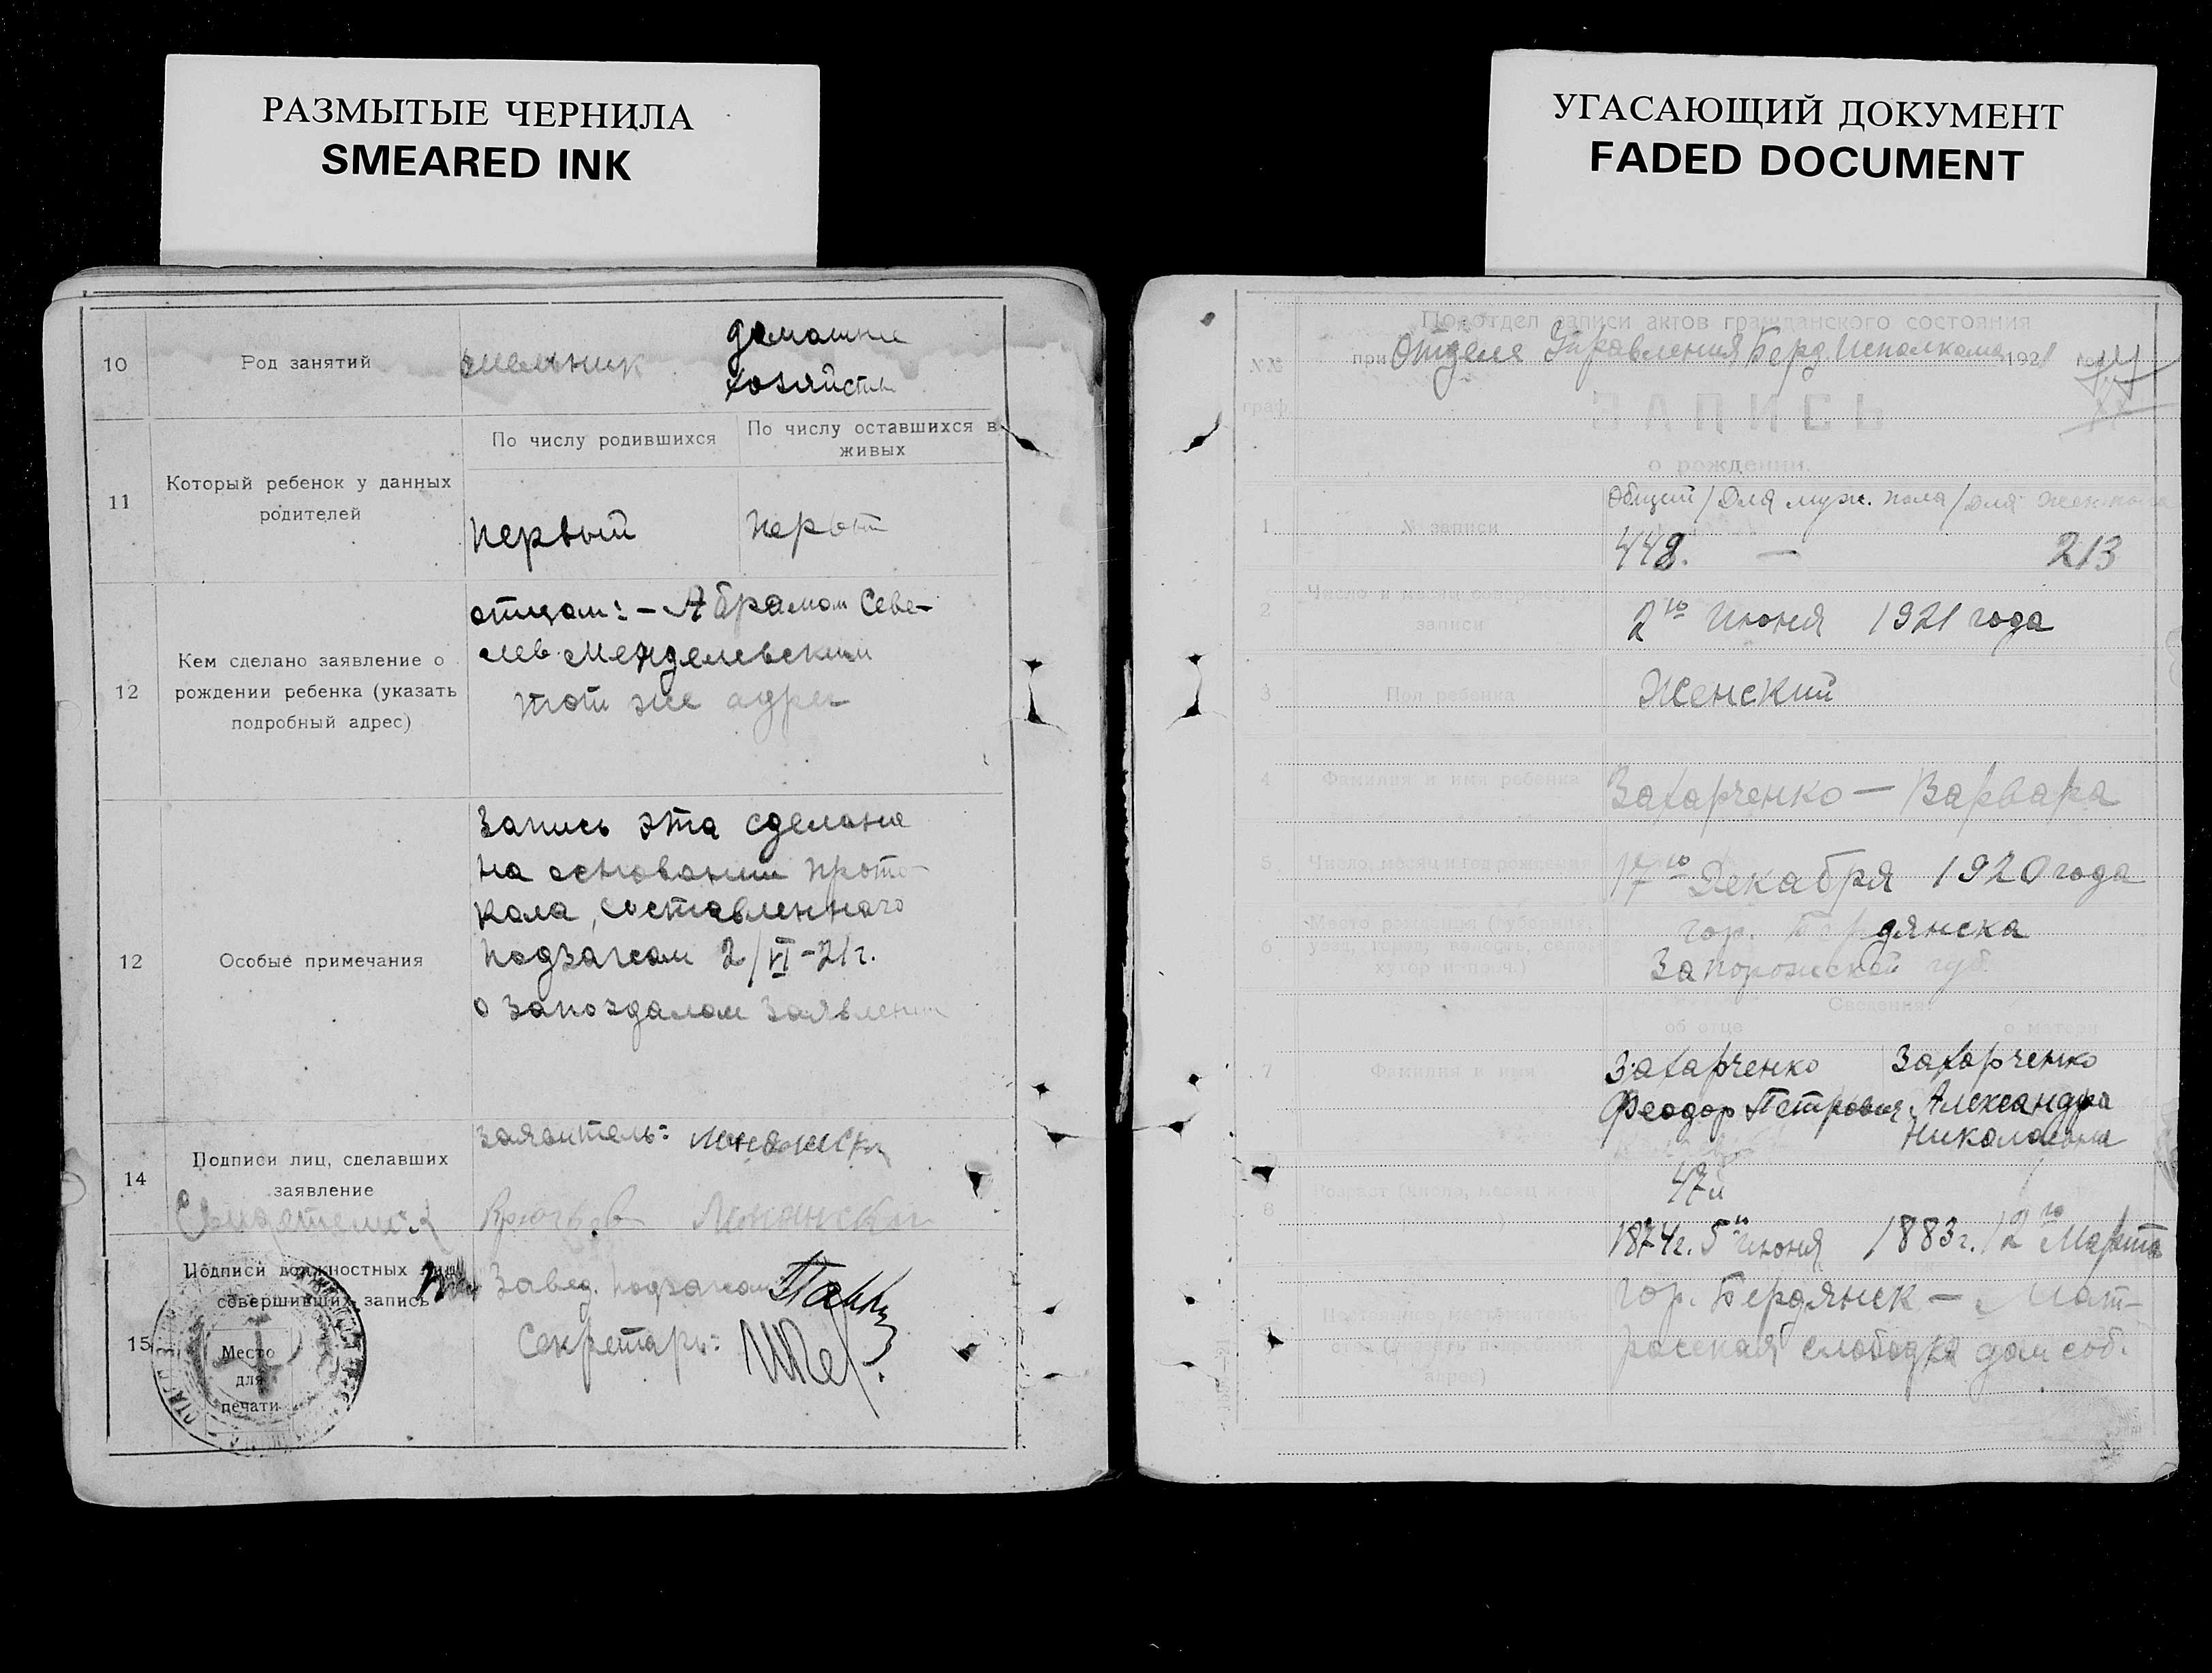 РАЗМЫТЫЕ ЧЕРНИЛА
SMEARED INK
10
Род занятий
мельник
домашнее
хозяйство
11
Который ребенок у данных
родителей
По числу родившихся
По числу оставшихся в
живых
первый
первый
12
Кем сделано заявление о
рождении ребенка (указать
подробный адрес)
отцом: – Абрамом Севе-
лев Менделевским
тот же адрес
12
Особые примечания
Запись эта сделана
на основании прото-
кола, составленного
подзагсом 2/VI – 21 г.
о запоздалом заявлении
14
Подписи лиц, сделавших
заявление
Свидетели:
заявитель:
15
Подписи должностных лиц
совершивших запись
Завед. подзагсом
Секретарь:
Место
для
печати
УГАСАЮЩИЙ ДОКУМЕНТ
FADED DOCUMENT
Подотдел записи актов гражданского состояния
№№
граф
при Отделе Управления Берд. Исполкома 1921 года
ЗАПИСЬ
о рождении.
1
№ записи
Общий / для муж. пола / для женского
448. — 213
2
Число и месяц совершения
записи
2го Июня 1921 года
3
Пол ребенка
Женский
4
Фамилия и имя ребенка
Захарченко — Варвара
5
Число, месяц и год рождения
17го Декабря 1920 года
6
Место рождения (губерния,
уезд, город, волость, село,
хутор и проч.)
гор. Бердянска
Запорожской губ.
Сведения:
об отце
о матери
7
Фамилия и имя
Захарченко
Феодор Петрович
Захарченко
Александра
Николаевна
8
Возраст (число, месяц и год
)
47 л
1874 г. 5го июня
1883 г. 12го Марта
Постоянное местожитель-
ство (указать подробный
адрес)
гор. Бердянск — Мат-
росская слободка дом соб.